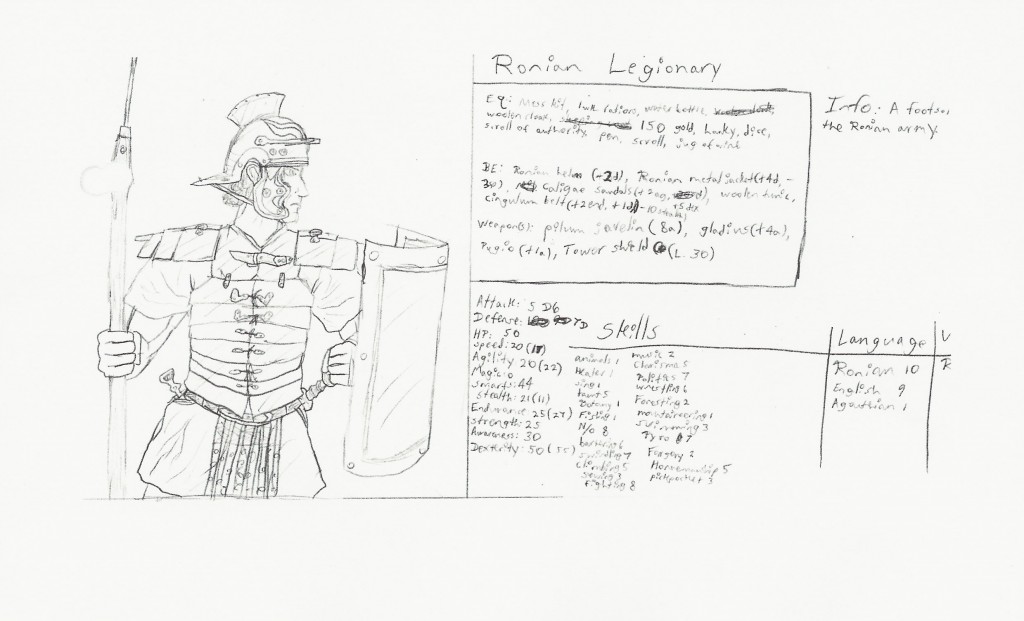 Ronian Legionary
Eq: Mess kit, 1 wk rations, water bottle,
woolen cloak, 150 gold, dice,
scroll of authority, pen, scroll, jug of wine
BE: Ronian helm (-2d), Ronian metal jacket (+4d, -
3g), caligae sandals (+2ag, woolen tunic,
cingulum belt (+2end, +1d)
Weapon(s): pilum javelin (8a), gladius (+4a),
Pugio (+1a), Tower shield (L. 30)
Info: A footso
the Ronian army.
Attack: 5 D6
Defense:
HP: 50
speed: 20
Agility 20 (22)
Magic: 0
smarts: 44
stealth: 21 (11)
Endurance 25 (27)
strength: 25
Awareness: 30
Dexterity: 50 (55)
Skills
animals 1
Healer 1
sing 1
taunt 5
Botany 1
Fishing 1
N/o 8
climbing 5
sewing 3
Fighting 8
music 2
Charisma 5
Politics 7
wrestling 6
Foresting 2
mountaineering 1
swimming 3
Pyro 7
Forgery 2
Horsemanship 5
pickpocket 3
Language
U
Ronian 10
R
English 9
Agauthian 1